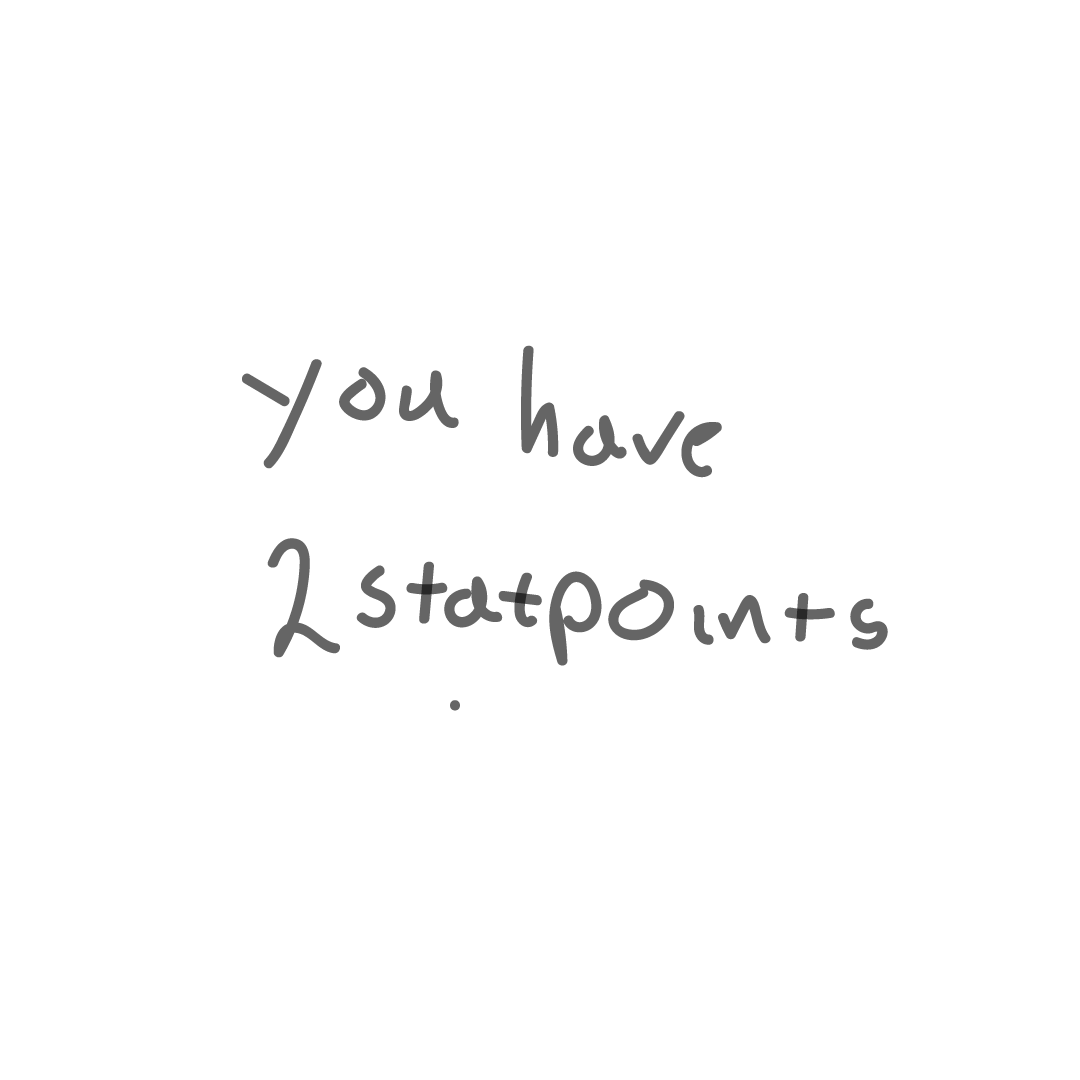 you have
2 statpoints
.